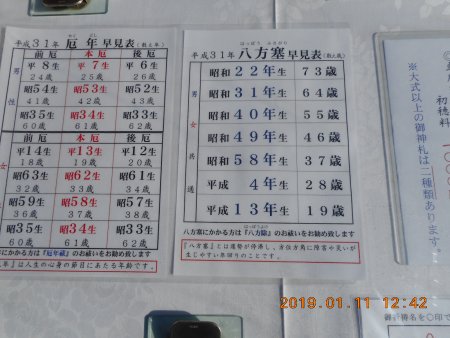 平成31年 厄年 早見表(数え年)
やく どし
前厄 本厄 後厄
男性
平8生 平7生 平6生
24歳 25歳 26歳
昭54生 昭53生 昭52生
41歳 42歳 43歳
昭35生 昭34生 昭33生
60歳 61歳 62歳
女性
平14生 平13生 平12生
18歳 19歳 20歳
昭63生 昭62生 昭61生
32歳 33歳 34歳
昭59生 昭58生 昭57生
36歳 37歳 38歳
昭35生 昭34生 昭33生
60歳 61歳 62歳
厄年にかかる方は『厄年祓』のお祓いをお勧め致します
年』は人生の心身の節目にあたる年齢です。
はっぽう ふさがり
平成31年 八方塞 早見表(数え歳)
男女共通
昭和22年生 73歳
昭和31年生 64歳
昭和40年生 55歳
昭和49年生 46歳
昭和58年生 37歳
平成4年生 28歳
平成13年生 19歳
はっぽうよけ
八方塞にかかる方は『八方除』のお祓いをお勧め致します
『八方塞』とは運勢が停滞し、方位方角に障害や災いが
生じやすい年廻りのことです。
初穂料
※大式以上の御神札は二種類あります。
2019.01.11 12:42